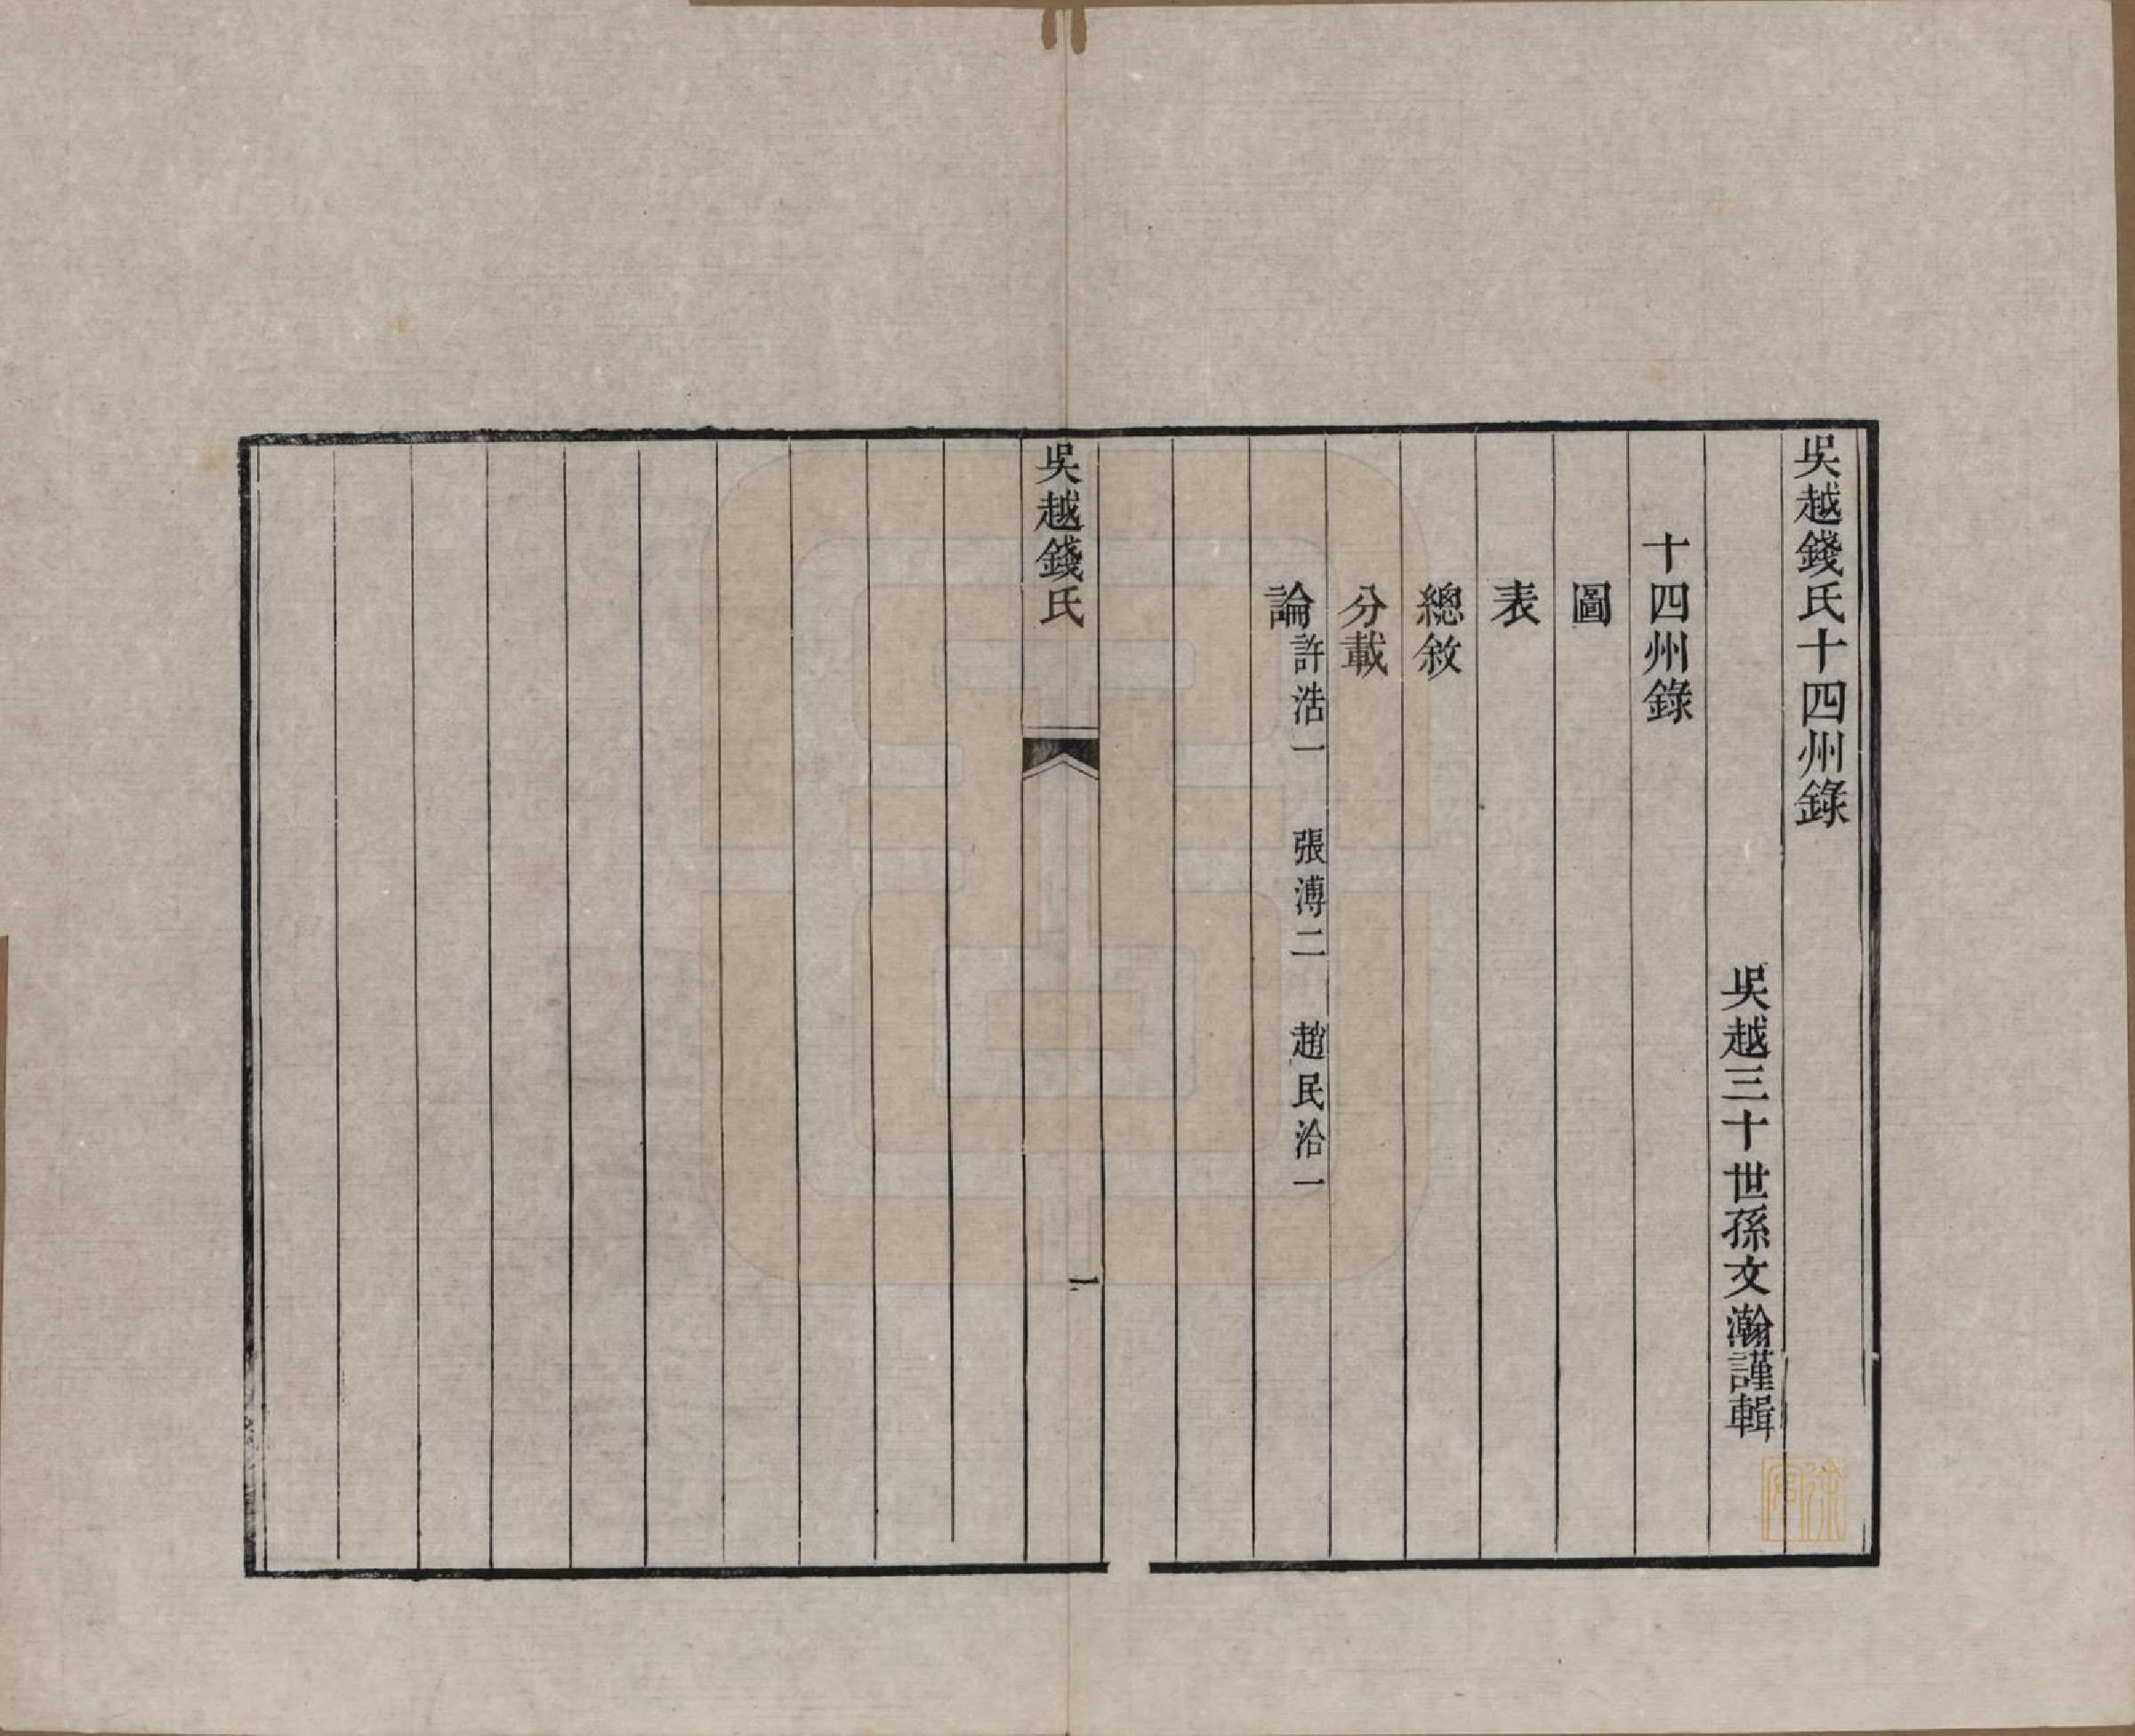 吳越錢氏十四州錄
吳越三十世孫文瀚謹輯
十四州錄
圖
表
總敘
分載
論 許浩一 張溥二 趙民洽一
吳越錢氏
一